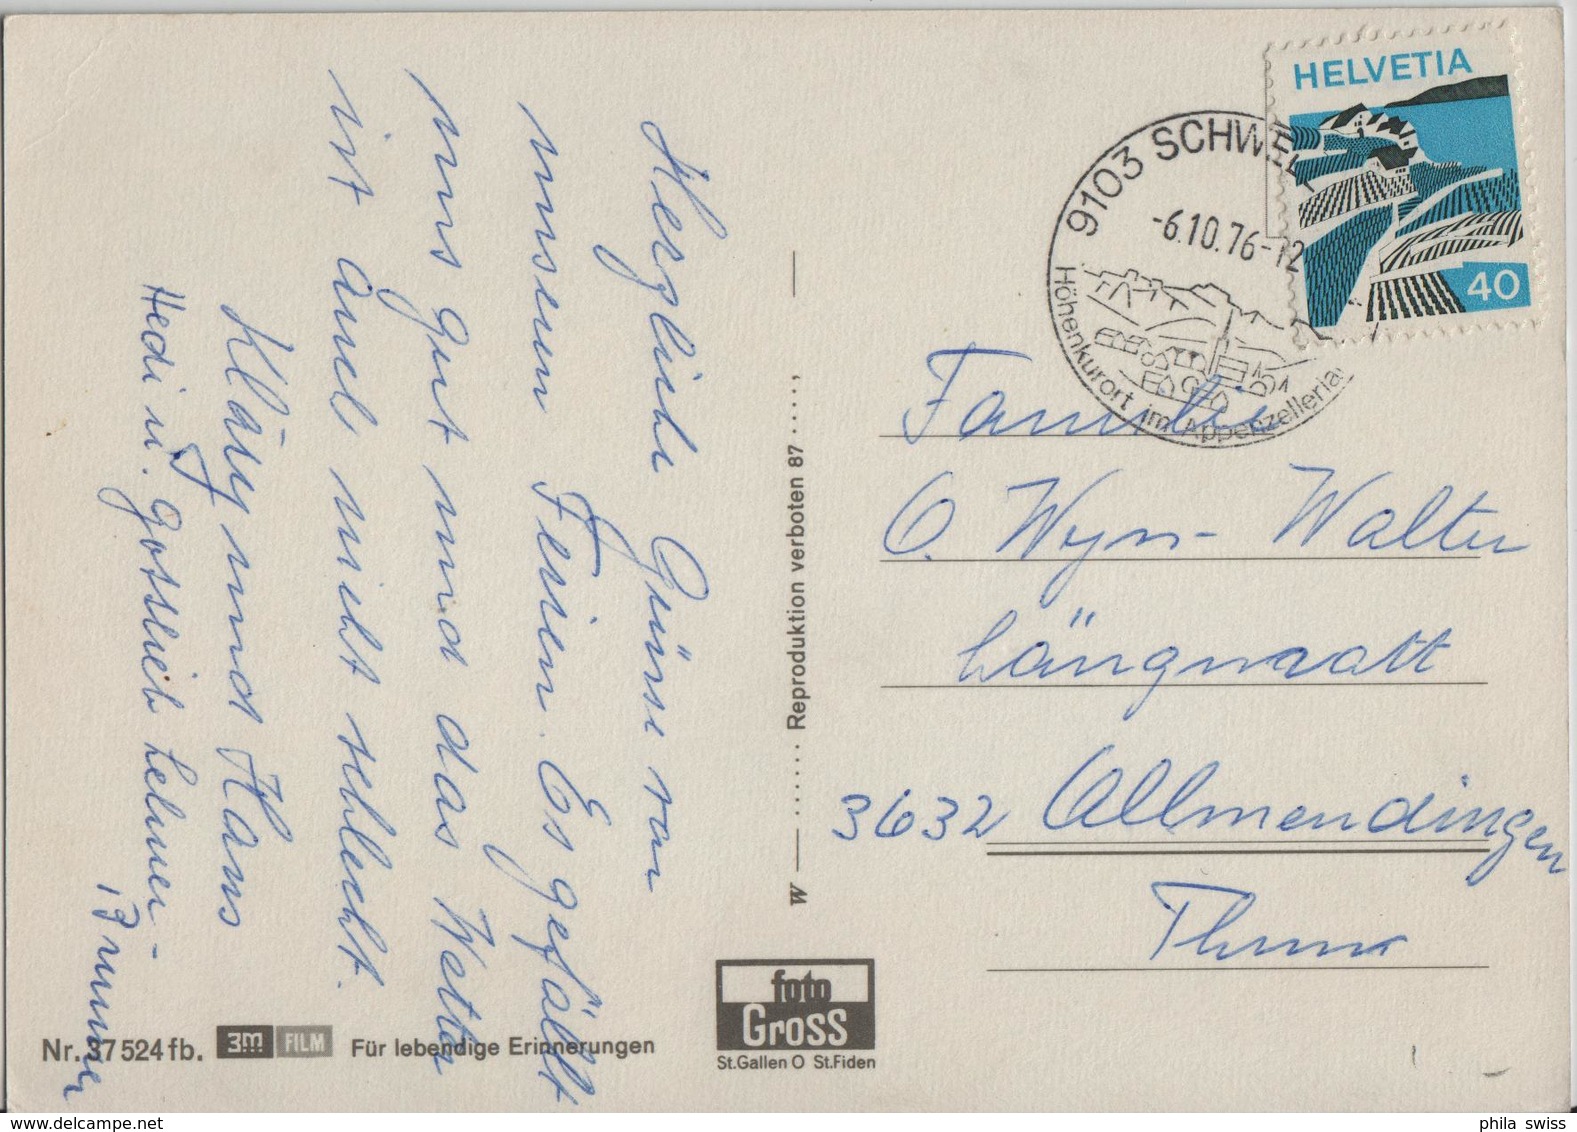 HELVETIA
40
9103 SCHWELL
-6.10.76-12
Höhenkurort im Appenzellerla
Herzliche Grüsse von
unseren Ferien. Es gefällt
uns gut und das Wetter
ist auch nicht schlecht.
Kläry und Hans
Hedi u. Gottlieb Lehner-
Brunner
Familie
O. Wyss-Walter
Längmatt
3632 Allmendingen
Thun
w Reproduktion verboten 87
foto
Gross
St.Gallen O St.Fiden
Nr. 37524fb. 3m FILM Für lebendige Erinnerungen
phila swiss